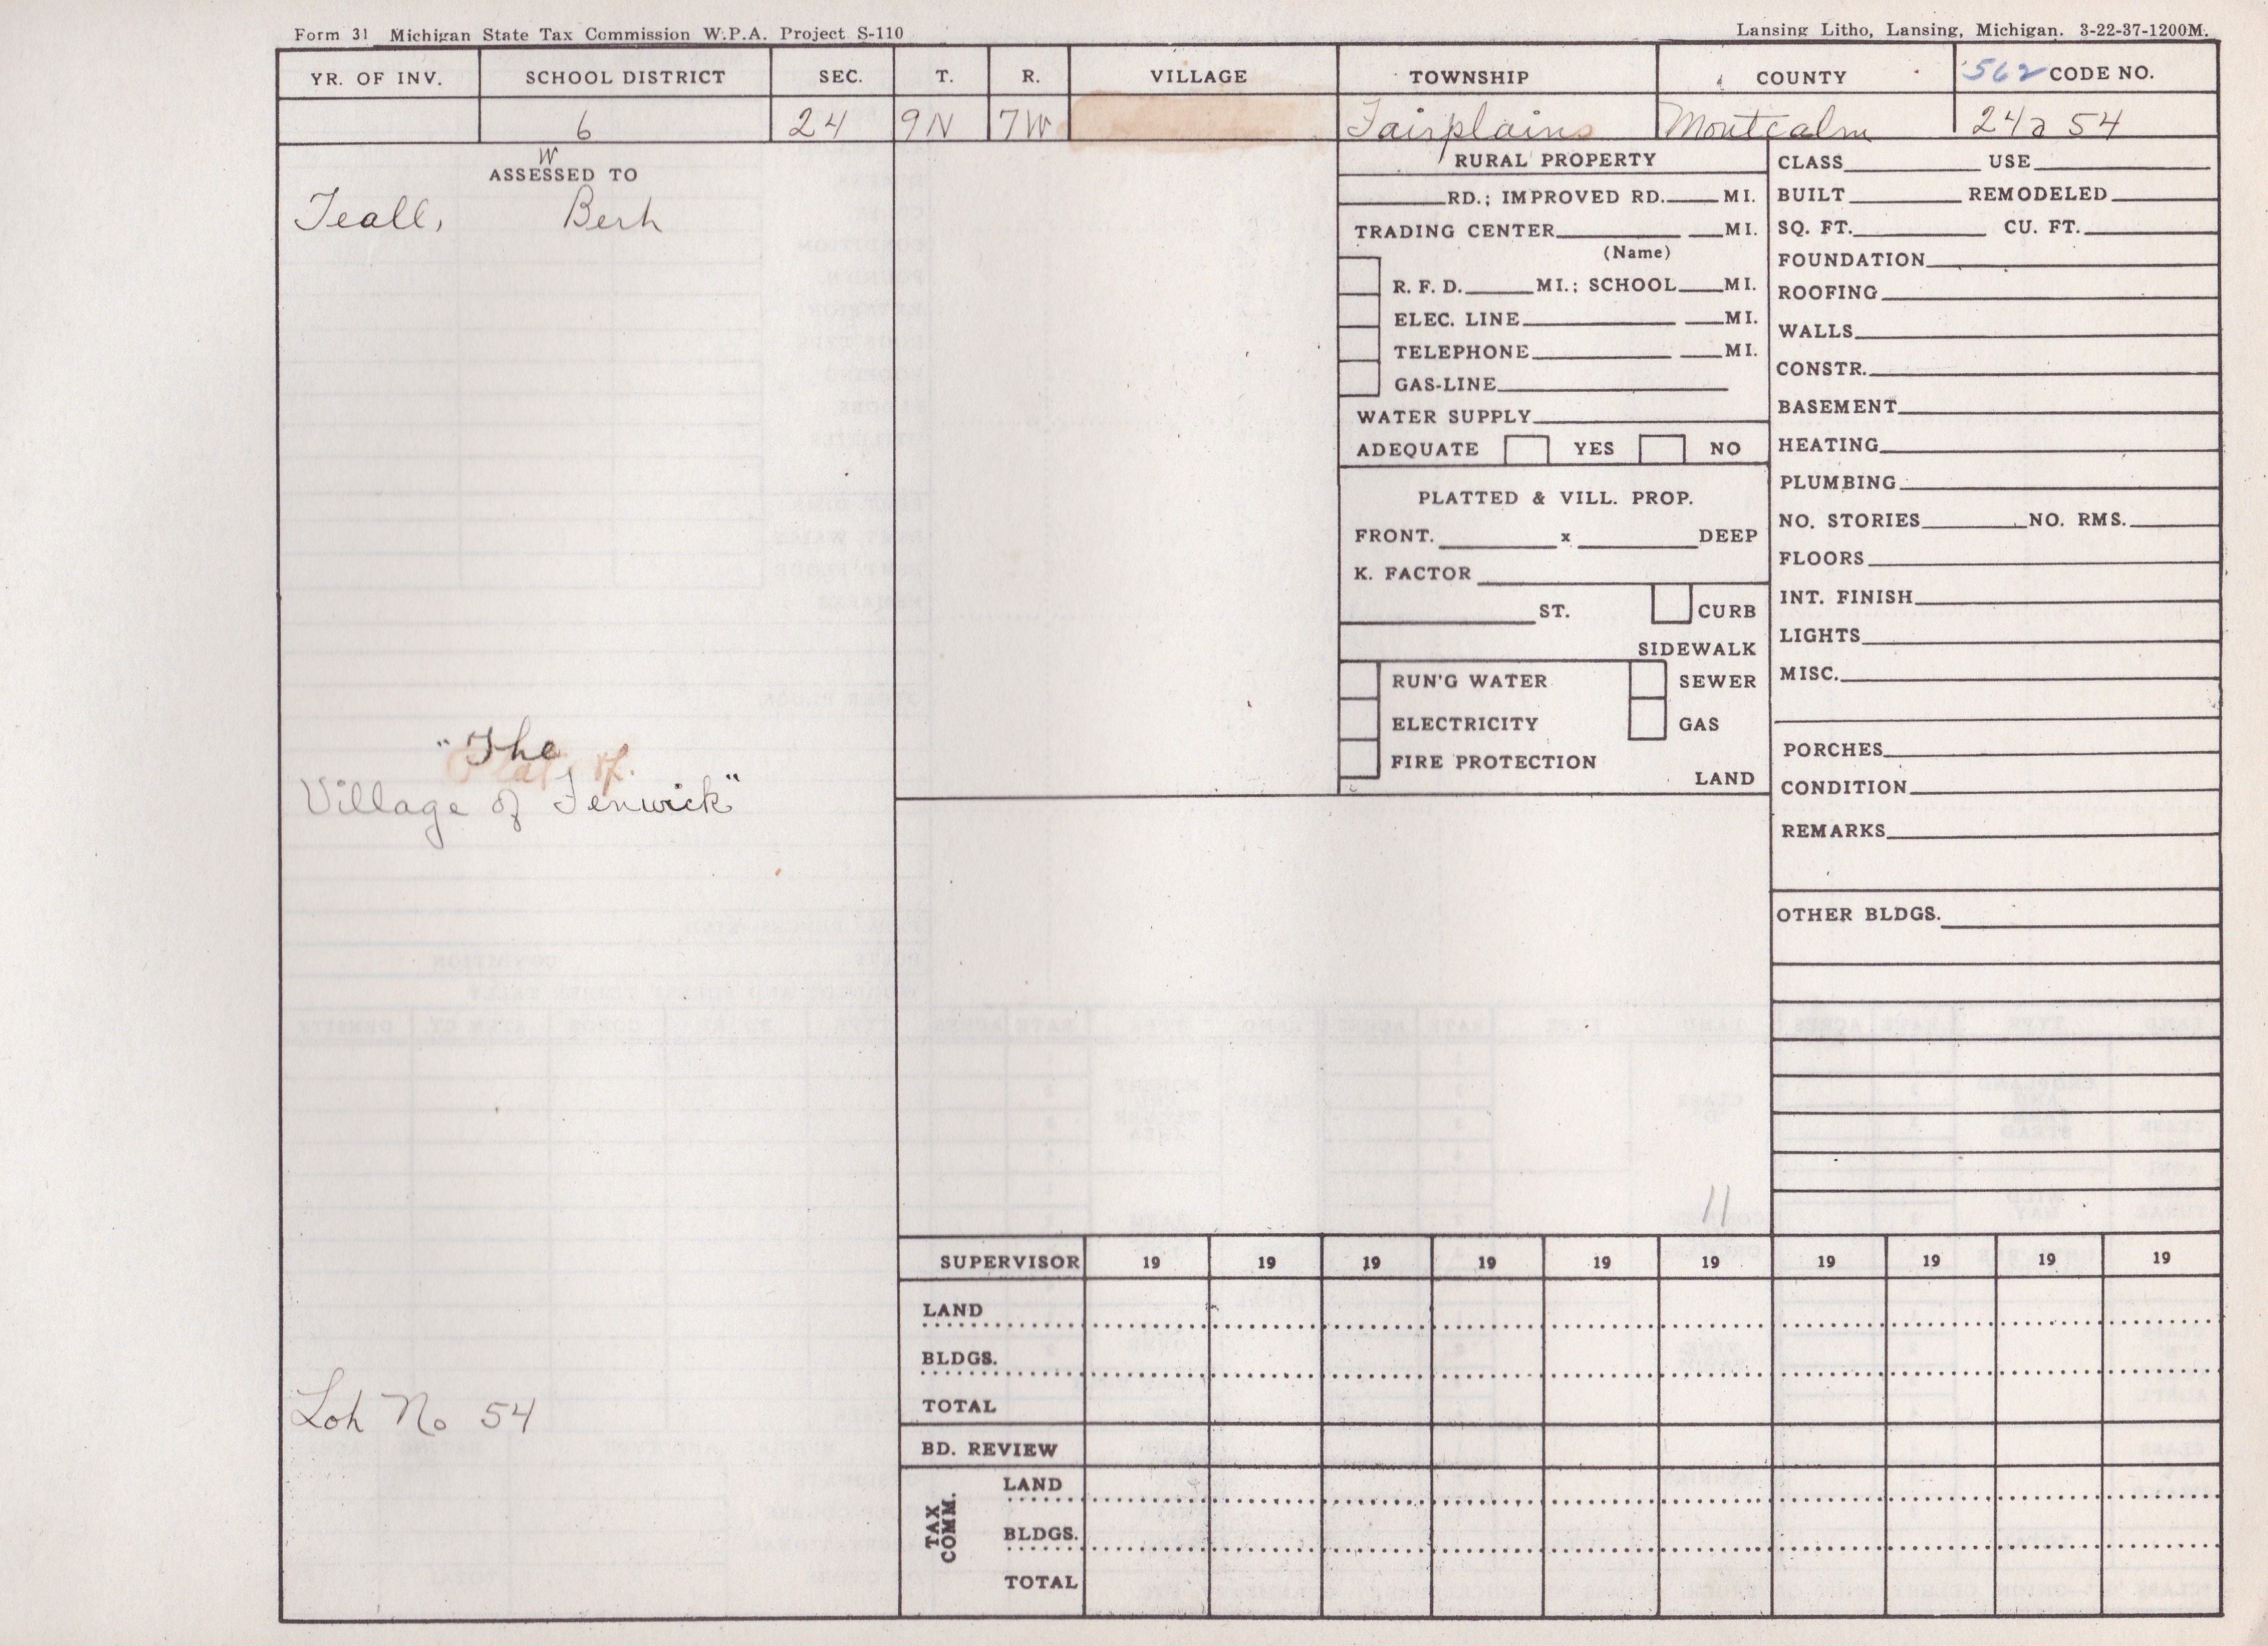 Form 31 Michigan State Tax Commission W.P.A. Project S-110
Lansing Litho, Lansing, Michigan. 3-22-37-1200M.
YR. OF INV. SCHOOL DISTRICT SEC. T. R. VILLAGE TOWNSHIP COUNTY 562 CODE NO.
6 24 9N 7W Fairplains Montcalm 24a 54
W
ASSESSED TO
Teall, Bert
"The
Village of Fenwick"
Lot No 54
RURAL PROPERTY
RD.; IMPROVED RD. MI.
TRADING CENTER MI.
(Name)
R. F. D. MI.; SCHOOL MI.
ELEC. LINE MI.
TELEPHONE MI.
GAS-LINE
WATER SUPPLY
ADEQUATE YES NO
PLATTED & VILL. PROP.
FRONT. x DEEP
K. FACTOR
ST. CURB
SIDEWALK
RUN'G WATER SEWER
ELECTRICITY GAS
FIRE PROTECTION
LAND
11
CLASS USE
BUILT REMODELED
SQ. FT. CU. FT.
FOUNDATION
ROOFING
WALLS
CONSTR.
BASEMENT
HEATING
PLUMBING
NO. STORIES NO. RMS.
FLOORS
INT. FINISH
LIGHTS
MISC.
PORCHES
CONDITION
REMARKS
OTHER BLDGS.
SUPERVISOR 19 19 19 19 19 19 19 19 19 19
LAND
BLDGS.
TOTAL
BD. REVIEW
TAX COMM.
LAND
BLDGS.
TOTAL